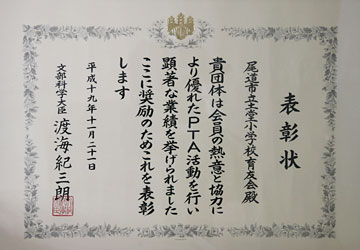 表彰状
尾道市立土堂小学校育友会殿
貴団体は会員の熱意と協力に
より優れたPTA活動を行い
顕著な業績を挙げられました
ここに奨励のためこれを表彰
します
平成十九年十一月二十一日
文部科学大臣 渡海紀三朗